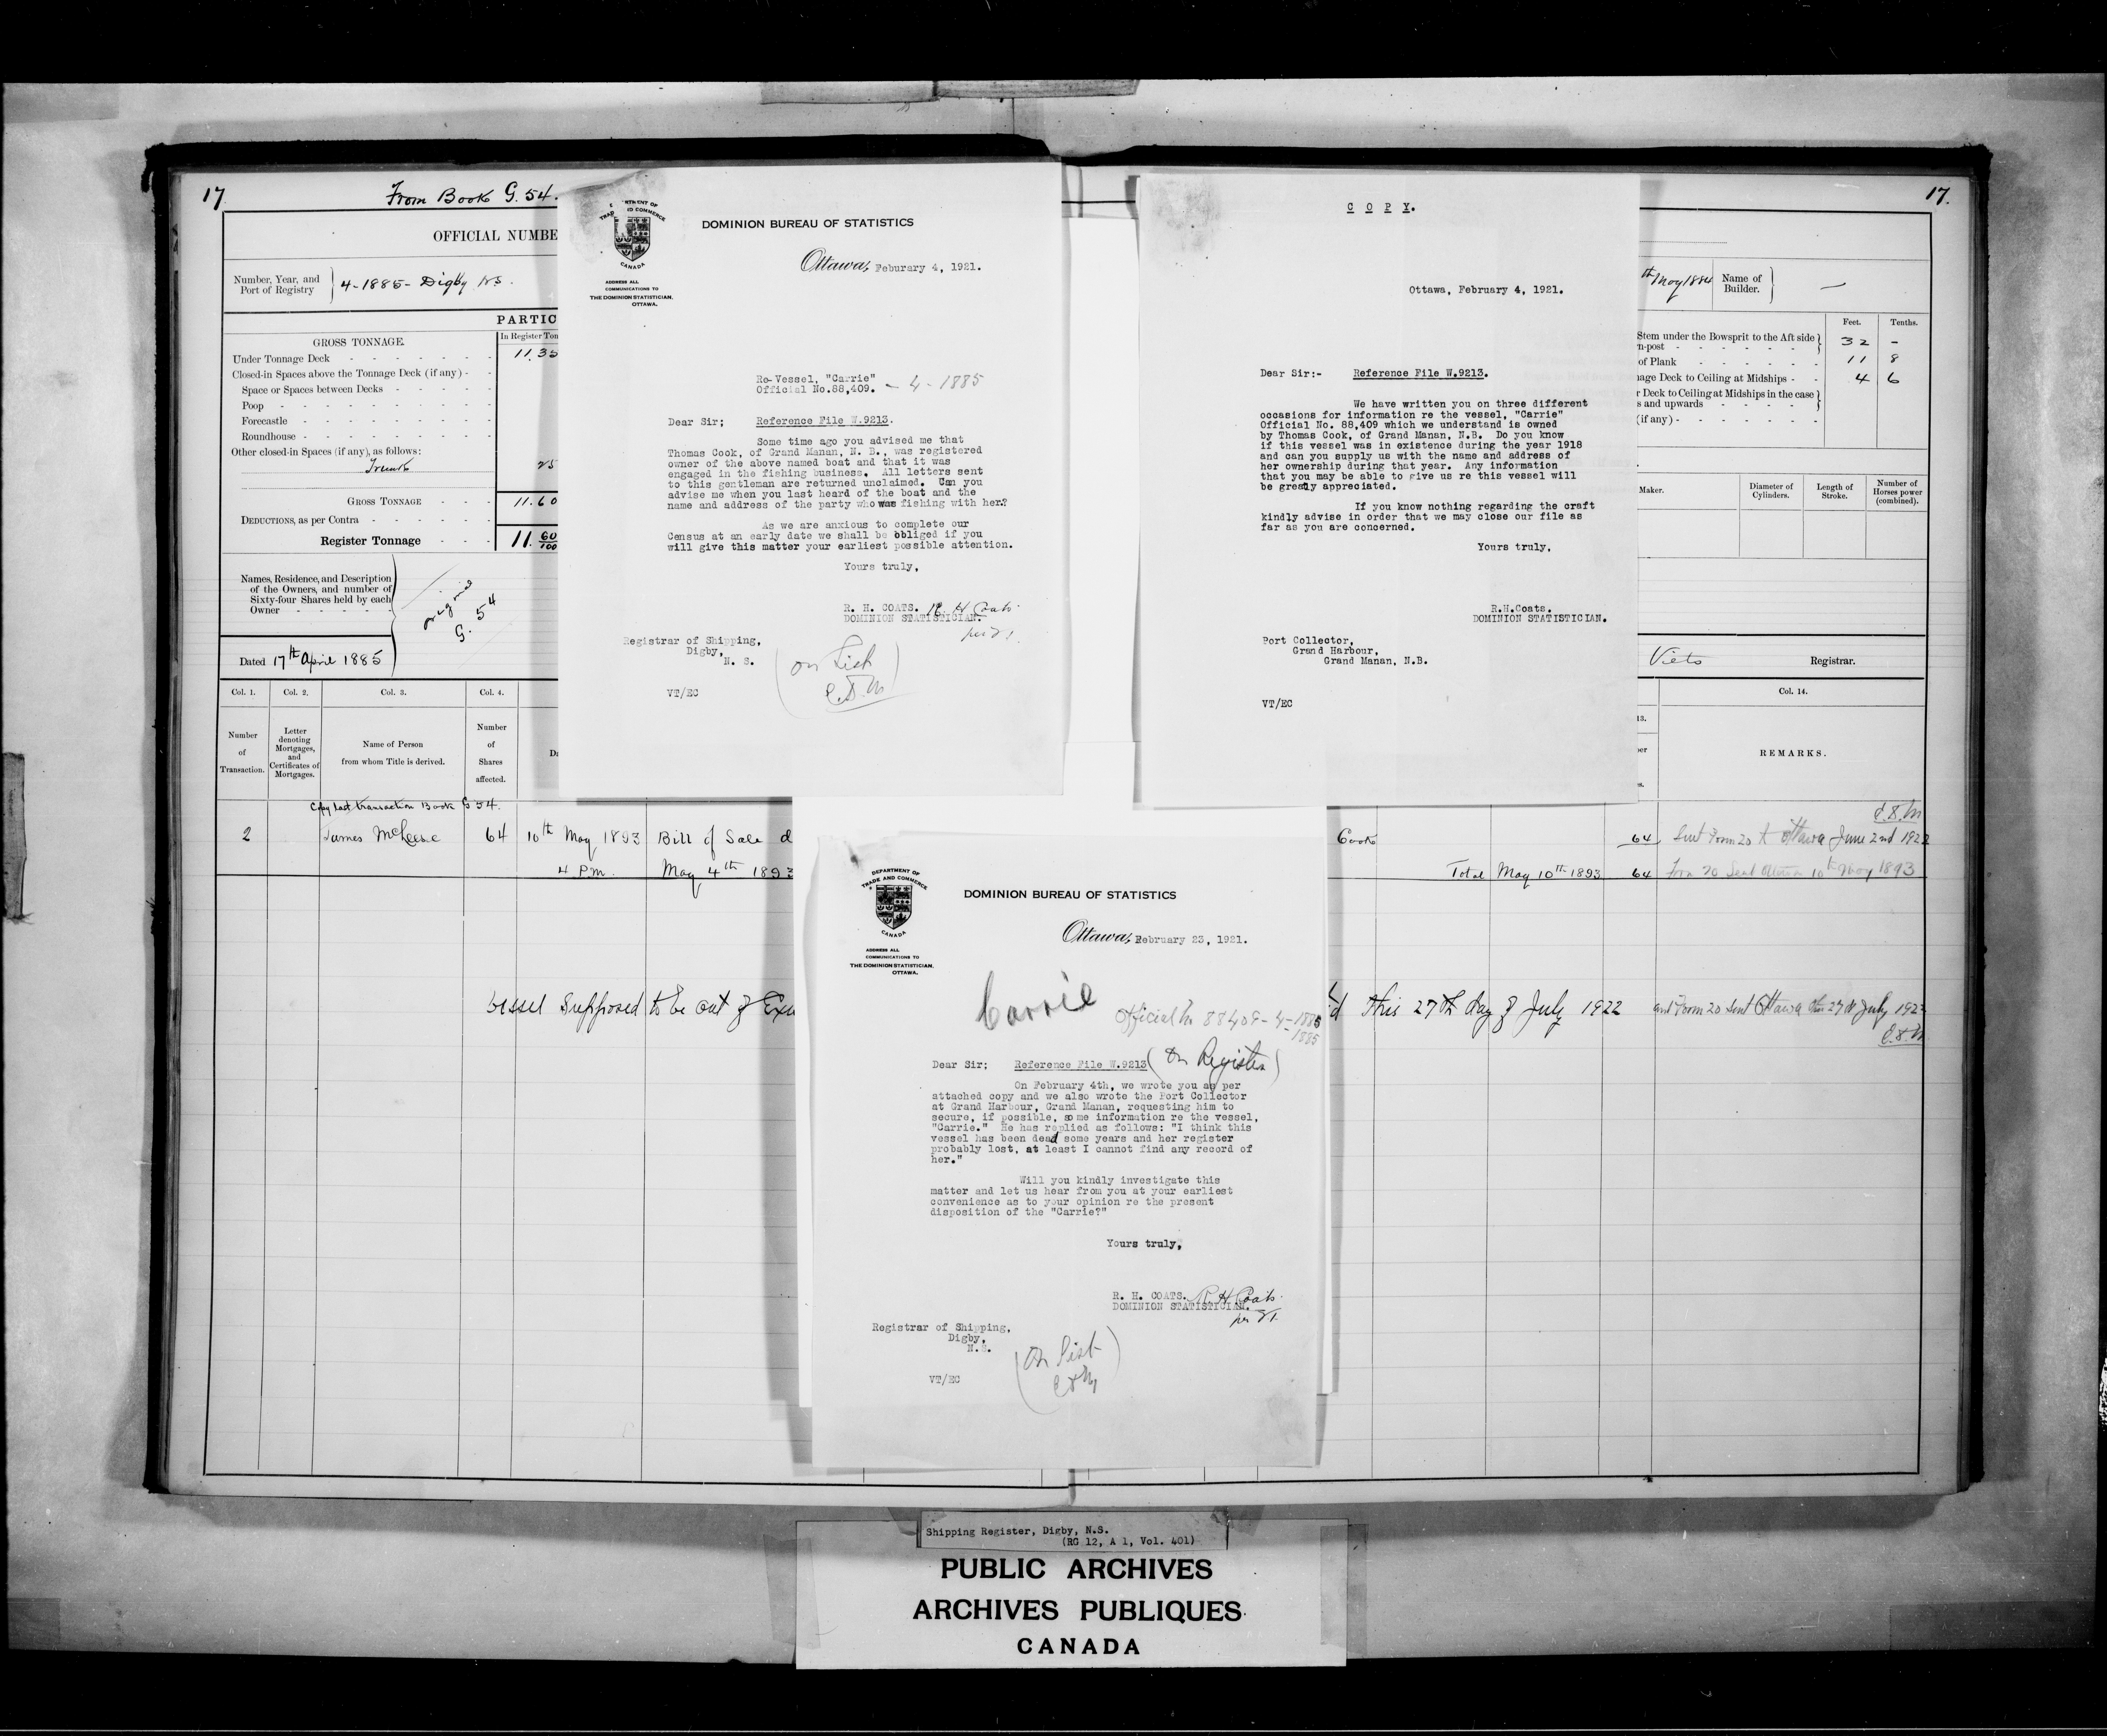 17
From Book G. 54.
OFFICIAL NUMBE
Number, Year, and
Port of Registry
4-1885- Digby NS.
PARTIC
GROSS TONNAGE.
In Register Ton
Under Tonnage Deck
11.35
Closed-in Spaces above the Tonnage Deck (if any) -
Space or Spaces between Decks
Poop
Forecastle
Roundhouse
Other closed-in Spaces (if any), as follows:
Trunk
25
GROSS TONNAGE
11.60
DEDUCTIONS, as per Contra
Register Tonnage
11. 60/100
Names, Residence, and Description
of the Owners, and number of
Sixty-four Shares held by each
Owner
origin
G. 54
Dated 17th April 1885
Col. 1.
Col. 2.
Col. 3.
Col. 4.
Number
of
Transaction.
Letter
denoting
Mortgages,
and
Certificates of
Mortgages.
Name of Person
from whom Title is derived.
Number
of
Shares
affected.
Da
Copy last transaction Book G 54.
2
James
64
10th May 1893
Bill of Sale d
4 P.m.
May 4th 1893
Vessel Supposed to be out of Exis
DEPARTMENT OF
TRADE AND COMMERCE
CANADA
DOMINION BUREAU OF STATISTICS
Ottawa, Feburary 4, 1921.
ADDRESS ALL
COMMUNICATIONS TO
THE DOMINION STATISTICIAN.
OTTAWA.
Re-Vessel, "Carrie"
Official No.88,409. - 4 - 1885
Dear Sir; Reference File W.9213.
Some time ago you advised me that
Thomas Cook, of Grand Manan, N. B., was registered
owner of the above named boat and that it was
engaged in the fishing business. All letters sent
to this gentleman are returned unclaimed. Can you
advise me when you last heard of the boat and the
name and address of the party who was fishing with her?
As we are anxious to complete our
Census at an early date we shall be obliged if you
will give this matter your earliest possible attention.
Yours truly,
R. H. COATS. R. H Coats.
DOMINION STATISTICIAN.
per
Registrar of Shipping,
Digby,
N. S.
(on List
VT/EC
C.P.Y.
C O P Y.
Ottawa, February 4, 1921.
Dear Sir:- Reference File W.9213.
We have written you on three different
occasions for information re the vessel, "Carrie"
Official No. 88,409 which we understand is owned
by Thomas Cook, of Grand Manan, N.B. Do you know
if this vessel was in existence during the year 1918
and can you supply us with the name and address of
her ownership during that year. Any information
that you may be able to give us re this vessel will
be greatly appreciated.
If you know nothing regarding the craft
kindly advise in order that we may close our file as
far as you are concerned.
Yours truly,
R.H.Coats.
DOMINION STATISTICIAN.
Port Collector,
Grand Harbour,
Grand Manan, N.B.
VT/EC
17.
th May 1884
Name of
Builder.
Feet.
Tenths.
Stem under the Bowsprit to the Aft side
n-post
32 -
of Plank
11 8
nage Deck to Ceiling at Midships
4 6
r Deck to Ceiling at Midships in the case
s and upwards
(if any)
Maker.
Diameter of
Cylinders.
Length of
Stroke.
Number of
Horses power
(combined).
Viets
Registrar.
Col. 14.
13.
REMARKS.
Cook
64
Sent Form 20 to Ottawa June 2nd 1922
Total May 10th 1893
64
Form 20 Sent Ottawa 10th May 1893
d this 27th day of July 1922
and Form 20 Sent Ottawa this 27th July 1922
DEPARTMENT OF
TRADE AND COMMERCE
CANADA
DOMINION BUREAU OF STATISTICS
Ottawa, February 23, 1921.
ADDRESS ALL
COMMUNICATIONS TO
THE DOMINION STATISTICIAN.
OTTAWA.
Carrie
Official No 88409 - 4 - 1885
1885
Dear Sir; Reference File W.9213 (on Register)
On February 4th, we wrote you as per
attached copy and we also wrote the Port Collector
at Grand Harbour, Grand Manan, requesting him to
secure, if possible, some information re the vessel,
"Carrie." He has replied as follows: "I think this
vessel has been dead some years and her register
probably lost, at least I cannot find any record of
her."
Will you kindly investigate this
matter and let us hear from you at your earliest
convenience as to your opinion re the present
disposition of the "Carrie?"
Yours truly,
R. H. COATS. R H Coats.
DOMINION STATISTICIAN.
per
Registrar of Shipping,
Digby,
N.S.
(On List
VT/EC
Shipping Register, Digby, N.S.
(RG 12, A 1, Vol. 401)
PUBLIC ARCHIVES
ARCHIVES PUBLIQUES
CANADA